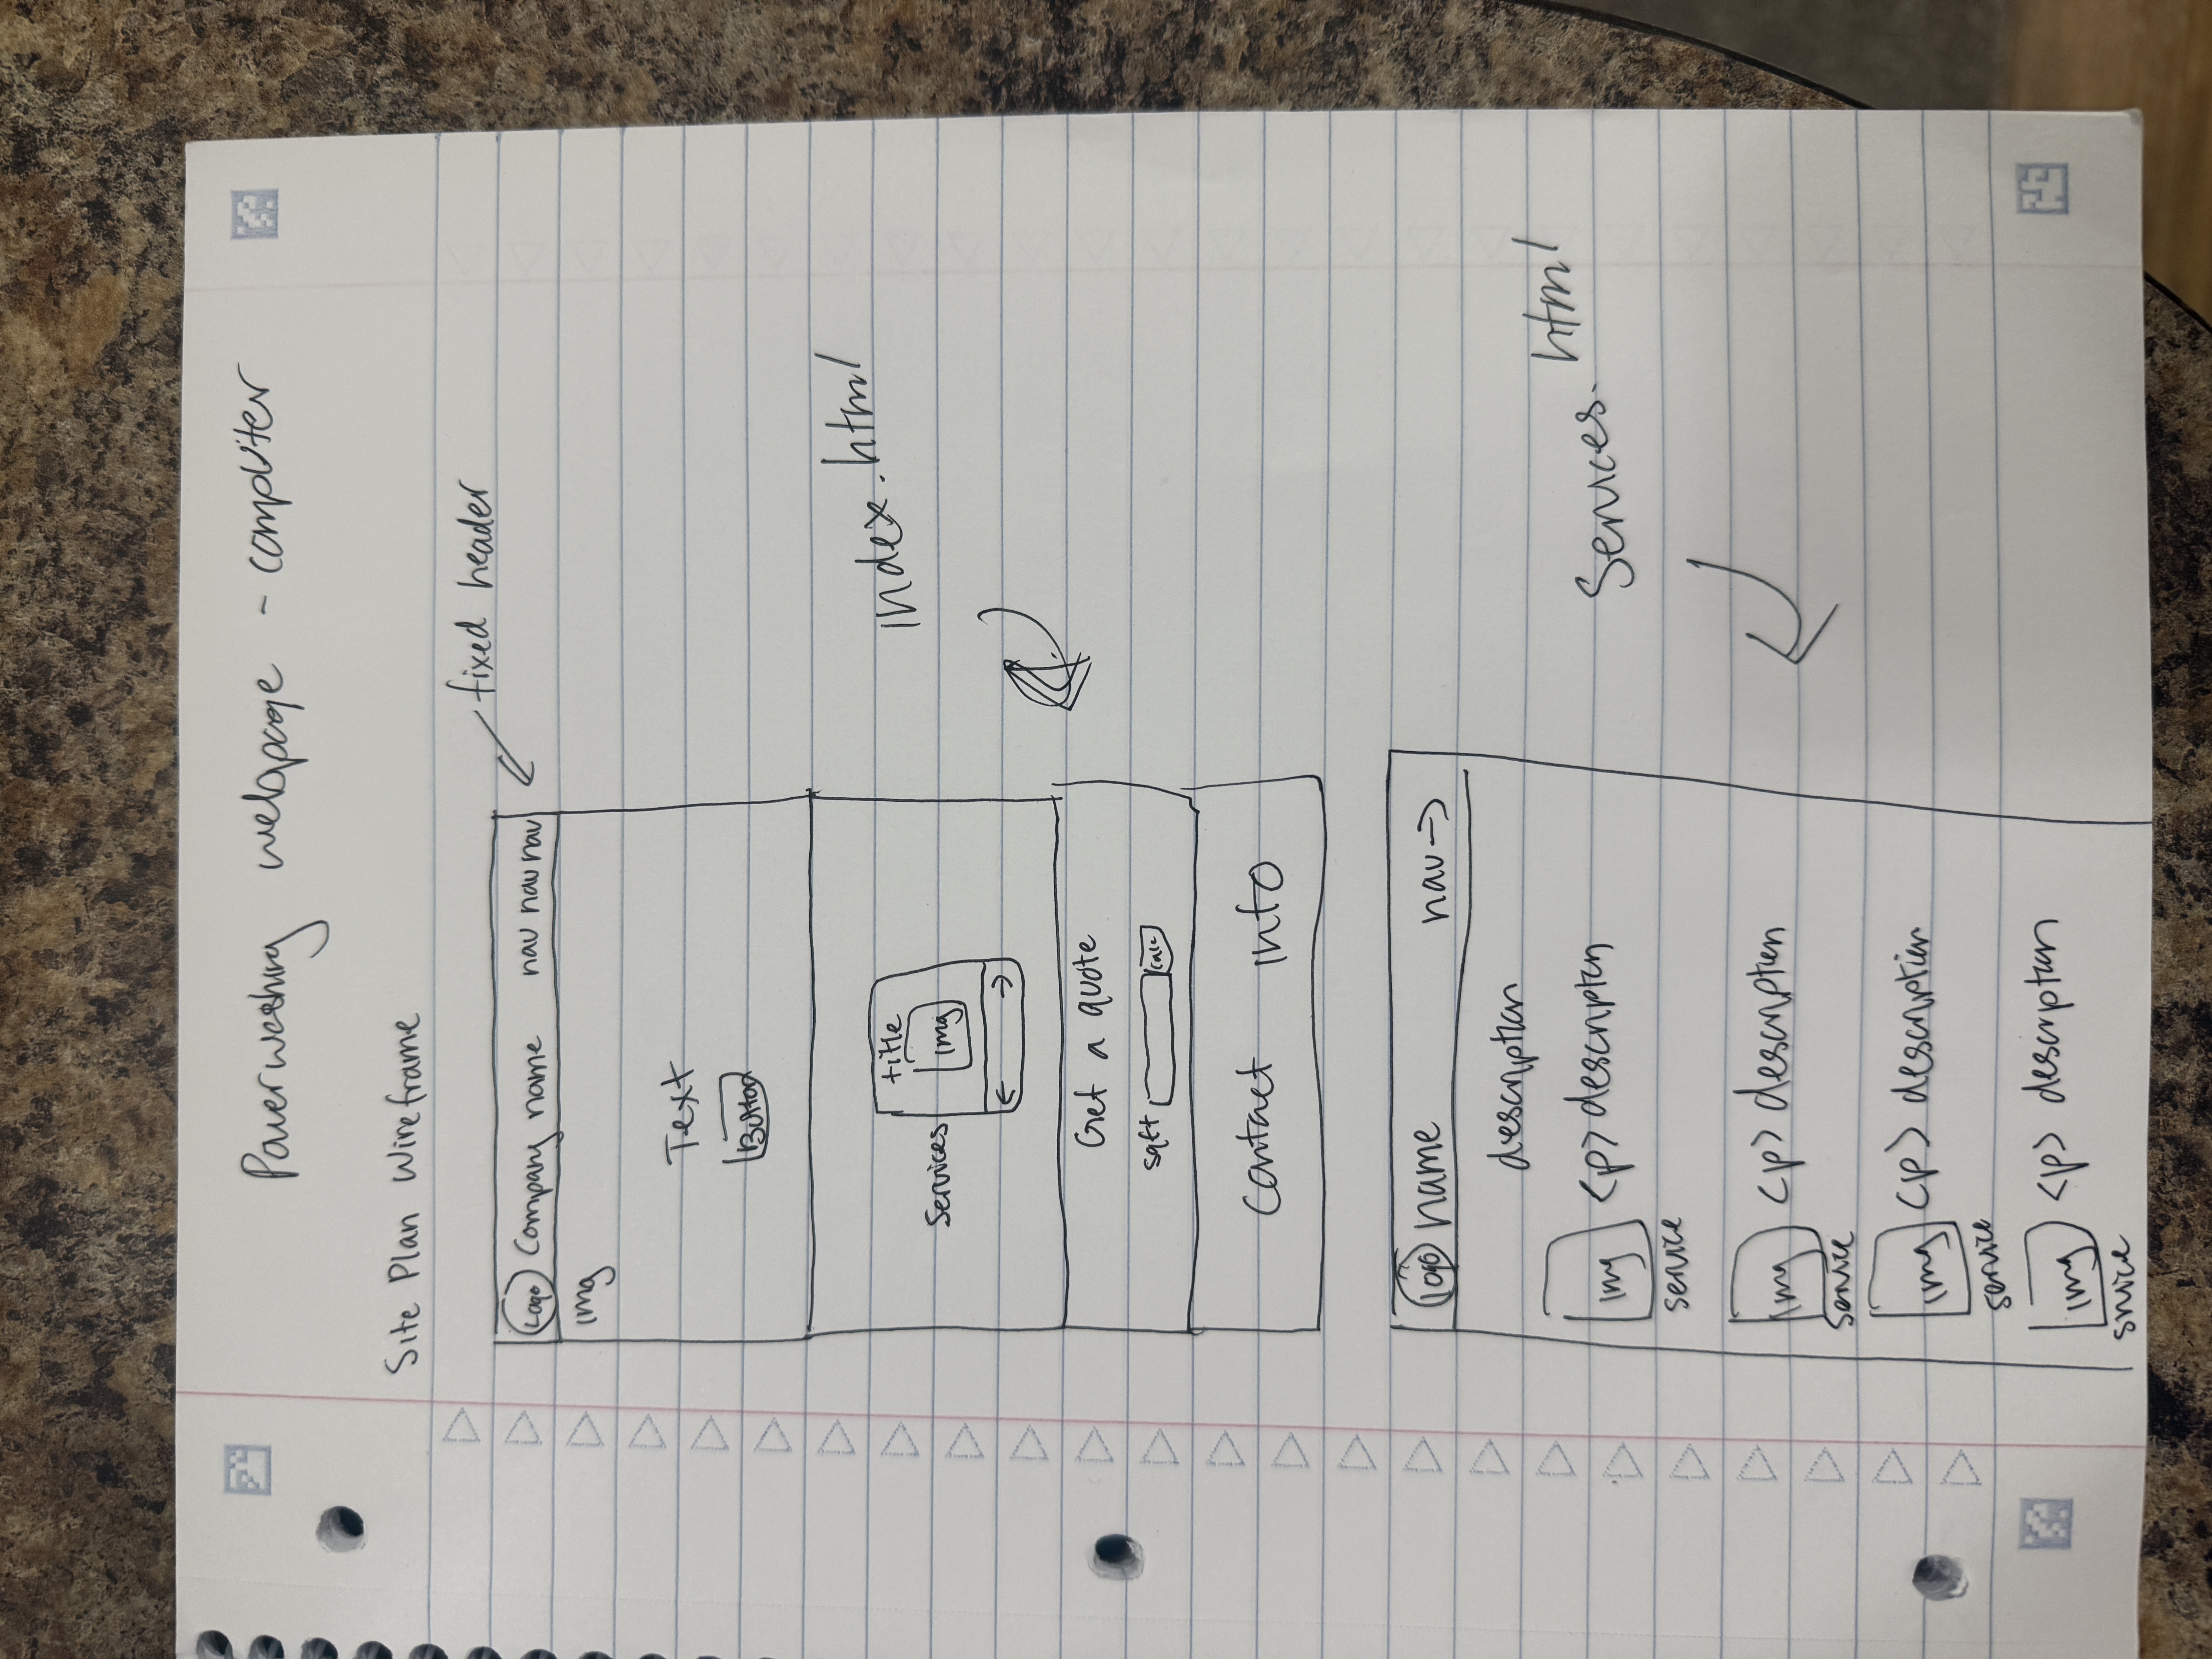 Powerwashing webpage - computer
Site Plan Wireframe
fixed header
Logo Company name nav nav nav
img
Text
Button
index.html
Services
title
img
← →
Get a quote
sqft calc
Contact info
Services.html
logo name nav →
description
img <p> description
service
img <p> description
service
img <p> description
service
img <p> description
service